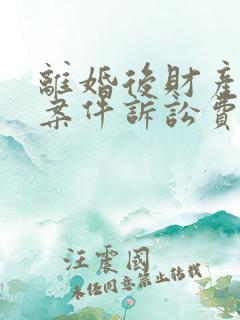 離婚後財產
案件訴訟費
汪震國
未經同意禁止轉載